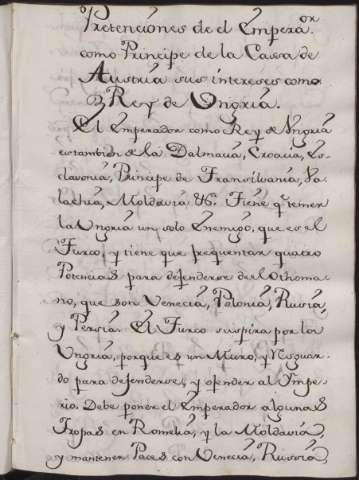 Pretenciones de el Empera.or
como Principe de la Cassa de
Austria sus intereses como
Rey de Ungria.
El Emperador como Rey de Ungria
es tambien de la Dalmacia, Croacia, Es-
clavonia, Principe de Transilvania, Va-
lachia, Moldavia &c. Tiene q. temer
la Ungria un solo Enemigo, que es el
Turco, y tiene que frequentar quatro
Potencias para defenderse del Othoma-
no, que son Venecia, Polonia, Russia,
y Persia. El Turco suspira por la
Ungria, porque es un Muro, y Resguar-
do para defenderse, y ofender al Impe-
rio. Debe poner el Emperador algunas
Tropas en Romelia, y la Moldavia,
y mantener Paces con Venecia, Russia,